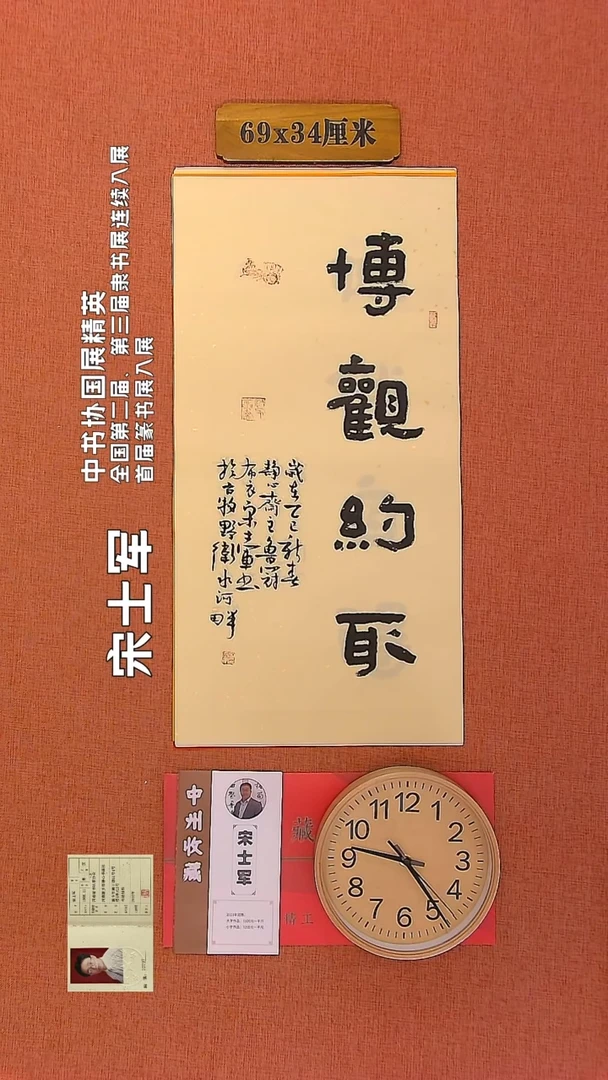 69x34厘米
博觀約取
歲在乙巳新春
靜心齋主
布衣宋士軍書
於古牧野衛水河畔
中书协国展精英
全国第二届、第三届隶书展连续入展
首届篆书展入展
宋士军
宋士军
藏
12
1
2
3
4
5
6
7
8
9
10
11